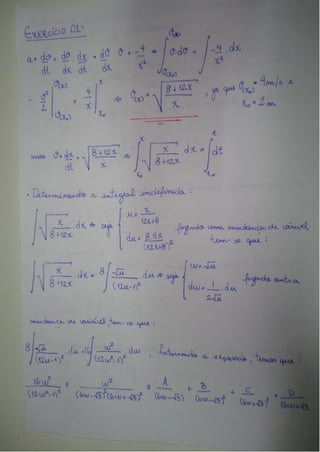 EXERCÍCIO 01:
a = dv/dt = dv/dx · dx/dt = dv/dx · v = -4/x² ⇒ ∫_{v(x0)}^{v(x)} v·dv = ∫ -4/x² · dx
∴ v²/2 |_{v(x0)}^{v(x)} = 4/x |_{x0}^{x} ⇒ v(x) = √((8+12x)/x) , já que v(x0) = 4m/s e x0 = 2m
mas v = dx/dt = √((8+12x)/x) ⇒ ∫_{x0}^{x} √(x/(8+12x)) · dx = ∫_{t0}^{t} dt
• Determinando a integral indefinida:
∫ √(x/(8+12x)) · dx ⇒ seja { u = x/(12x+8) du = 8·dx/(12x+8)² fazendo uma mudança de variável tem-se que:
∫ √(x/(8+12x)) · dx = 8 ∫ √u/(12u-1)² du ⇒ seja { w = √u dw = 1/(2√u) · du fazendo outra
mudança de variável, tem-se que:
8 ∫ √u/(12u-1)² · du = 16 ∫ w²/(12w²-1)² · dw , fatorando a expressão, temos que:
16w²/(12w²-1)² = w²/((6w-√3)²(6w+√3)²) = A/(6w-√3) + B/(6w-√3)² + C/(6w+√3)² + D/(6w+√3)